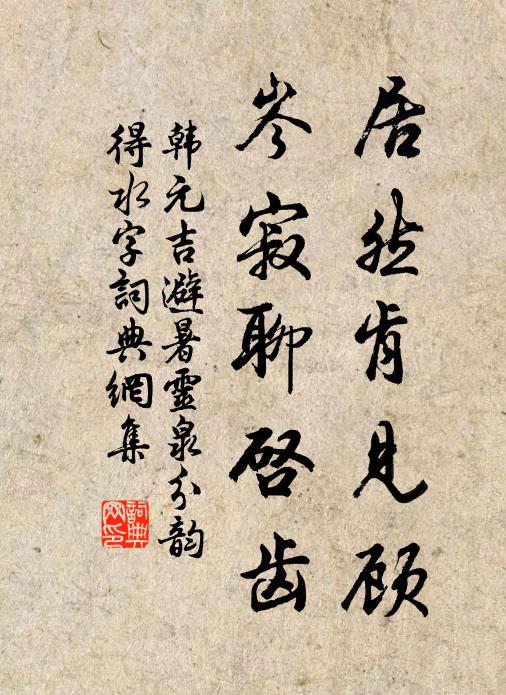 居然肯见顾
岑寂聊启齿
韩元吉避暑靈泉分韵
得水字詞典網集
詞典網印